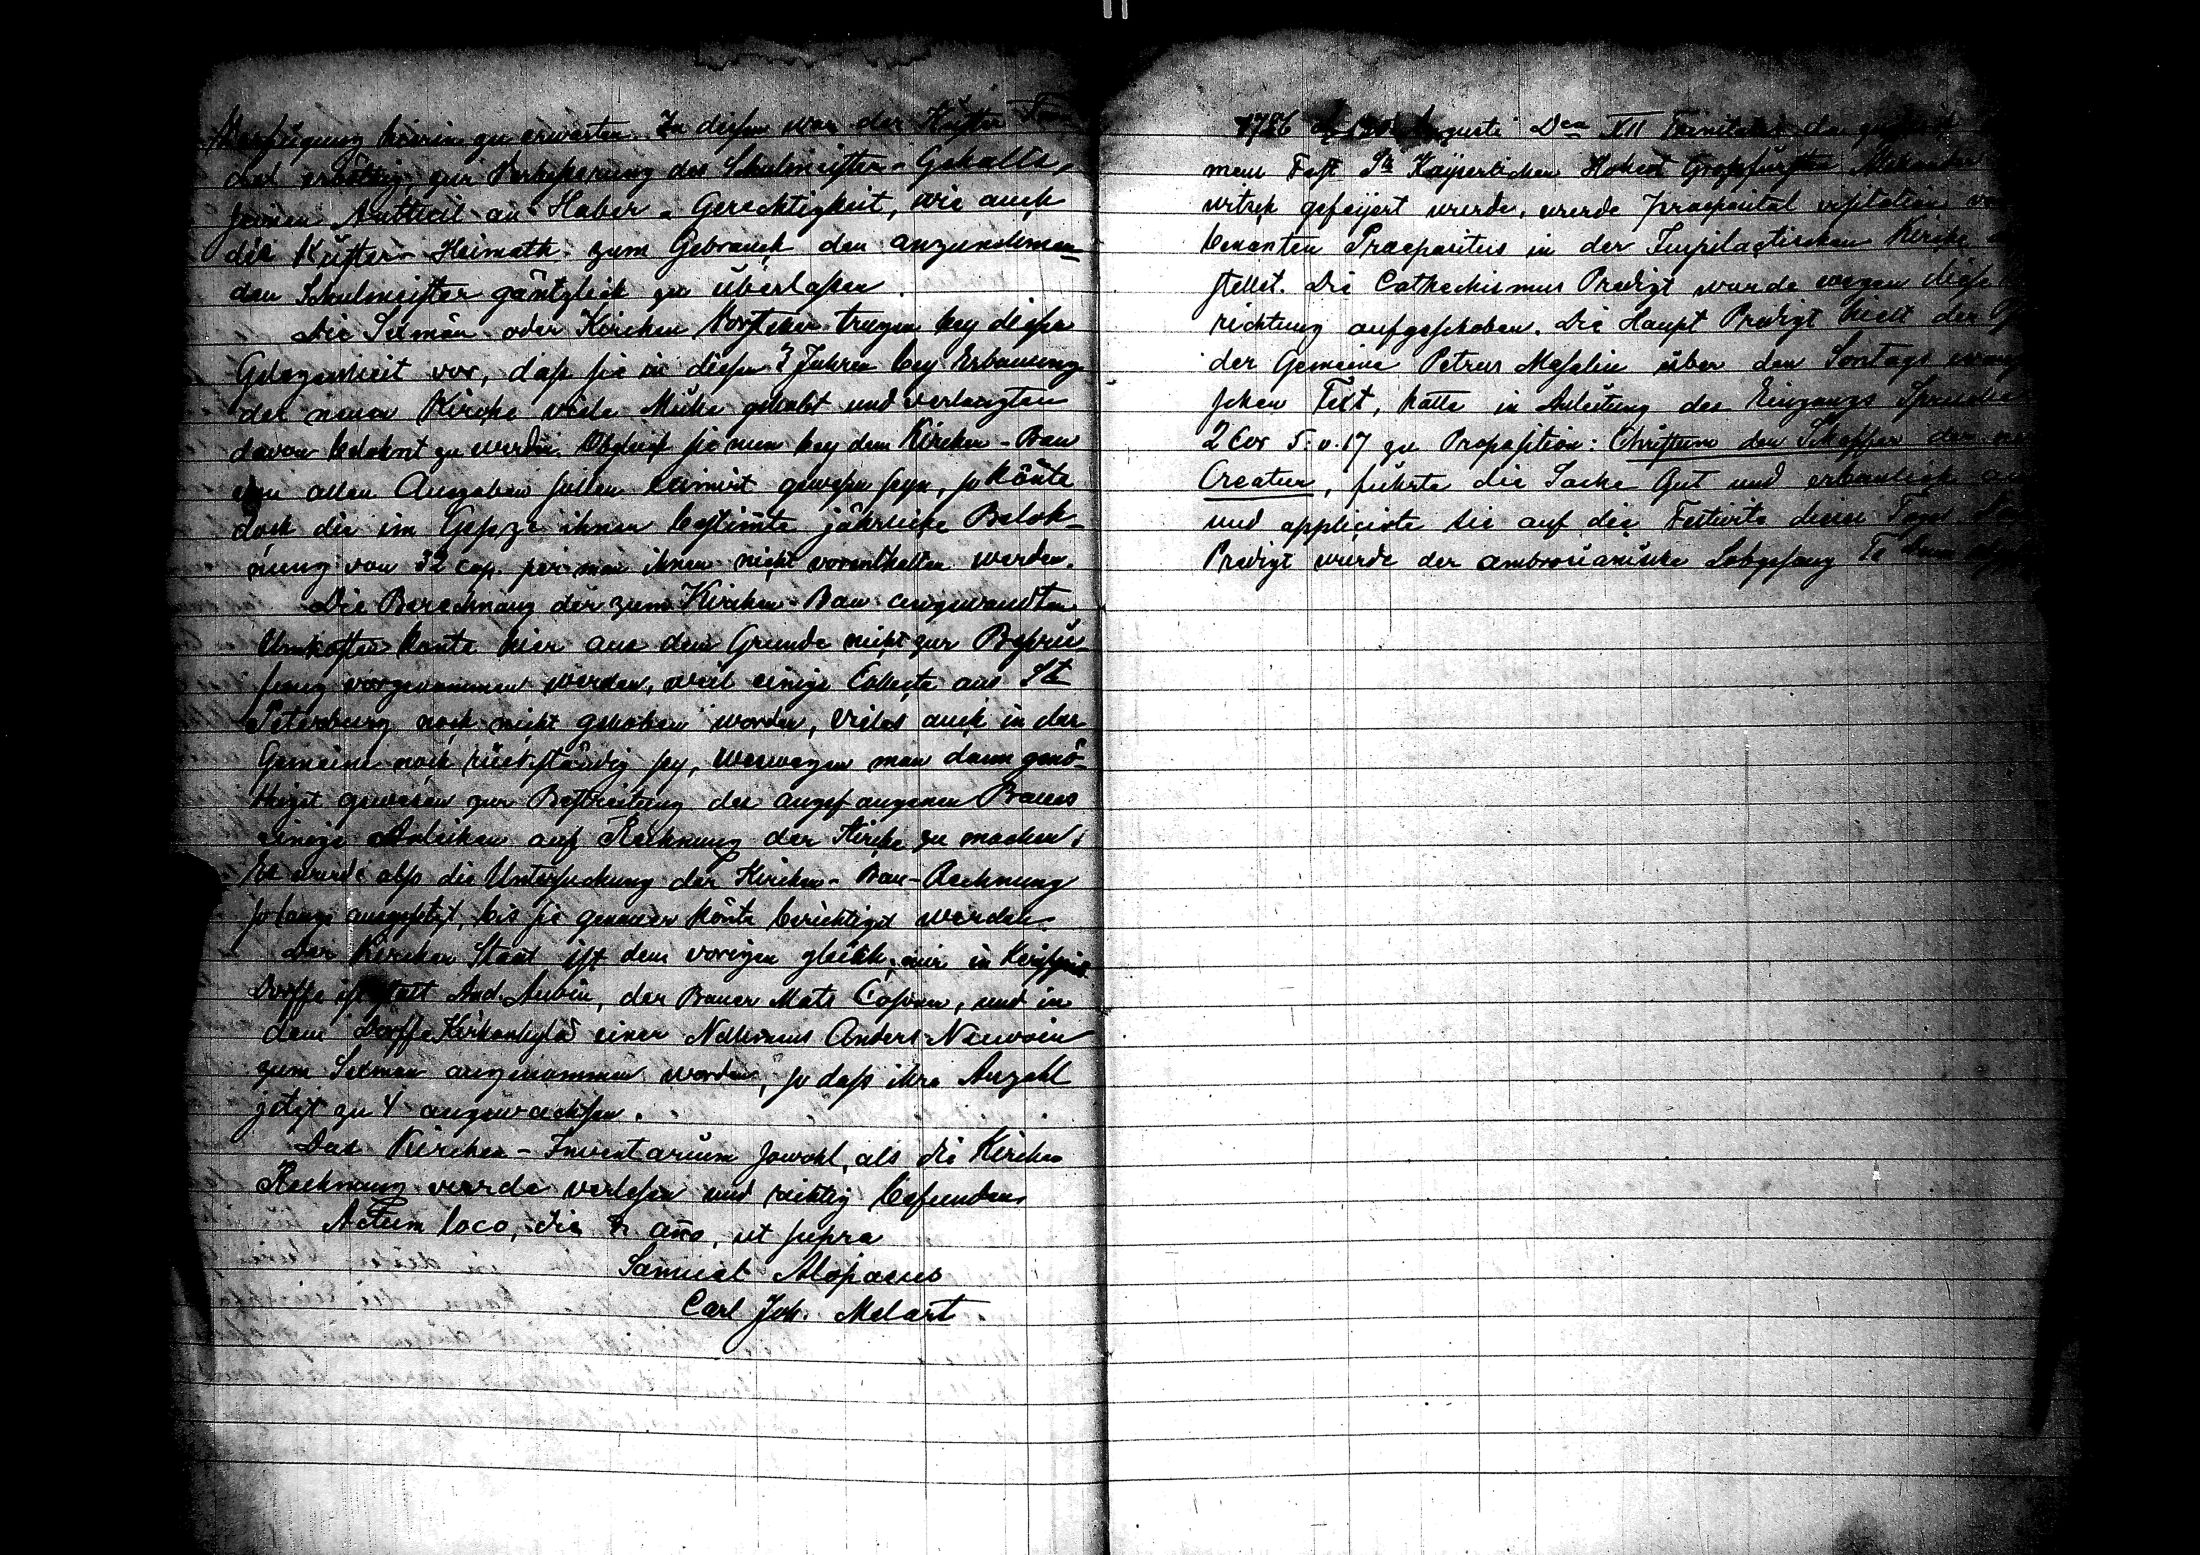 Verfügung hierin zu erwarten. In dessen war der Küster
und erbötig, zur Verbesserung des Schulmeister-Gehalts,
seinen Antheil an Haber-Gerechtigkeit, wie auch
die Küster-Heimath zum Gebrauch den anzunehmen=
den Schulmeister gäntzlich zu überlassen.
Die Sexmän oder Kirchen Vorsteher trugen bey dieser
Gelegenheit vor, dass sie in diesen 3 Jahren bey Erbauung
der neuen Kirche viele Mühe gehabt und verlangten
davon belohnt zu werden. Obgleich sie nun bey dem Kirchen-Bau
von allen Ausgaben sollen eximirt gewesen seyn, so könte
doch die im Gesezze ihnen bestimte jährliche Beloh=
nung von 32 cop. per man ihnen nicht vorenthalten werden.
Die Berechnung der zum Kirchen-Bau angewandten
Unkosten konte hier aus dem Grunde nicht zur
vorgenommen werden, weil einige Collecte aus St
Petersburg noch nicht gehoben worden, vieles auch in der
Gemeine noch rückständig sey, weswegen man dann genö=
thiget gewesen zur Bestreitung des angefangenen Baues
einige Anleihen auf Rechnung der Kirche zu machen.
Es wurde also die Untersuchung der Kirchen-Bau-Rechnung
so lange ausgesetzt, bis sie genauer könte berichtiget werden.
Der Kirchen Staat ist dem vorigen gleich, nur in
Dorffe ist statt And. Aubin, der Bauer Mats, und in
dem Dorffe einer Nahmens Anders
zum Sexman angenommen worden, so dass ihre Anzahl
jetzt zu 4 angewachsen.
Das Kirchen-Inventarium sowohl, als die Kirchen
Rechnung wurde verlesen und richtig befunden
Actum loco, die & año, ut supra
Samuel Alopaeus
Carl Joh. Melart
1786 Augusti Dca XII Trinitatis da
mene Fest Sr Kayserlichen Hoheit Grossfürsten
witsch gefeijert wurde, wurde praeposital visitation
benanten Praepositus in der Impilactischen Kirche
stellet. Die Cathechismus Predigt wurde wegen diese
richtung aufgeschoben. Die Haupt Predigt hielt der
der Gemeine Petrus Masalin über den Sontags
schen Text, hatte in Anleitung des Eingangs Spruches
2 Cor 5. v. 17 zu Proposition: Christum den Schöpfer der
Creatur, führte die Sache Gut und erbaulich
und applicirte sie auf die Festivité dieses Tages
Predigt wurde der ambrosianische Lobgesang Te Deum